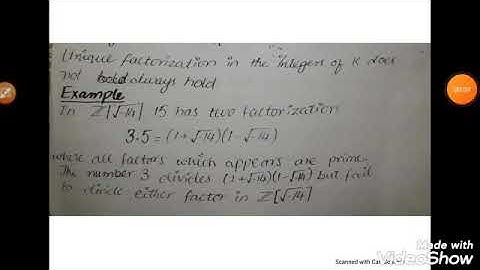 Unique factorization in the integers of K does
not always hold
Example
In Z[√-14] 15 has two factorization
3.5 = (1+√-14)(1-√-14)
where all factors which appears are prime.
The number 3 divides (1+√-14)(1-√-14) but fail
to divide either factor in Z[√-14]
Scanned with
Made with
VideoShow